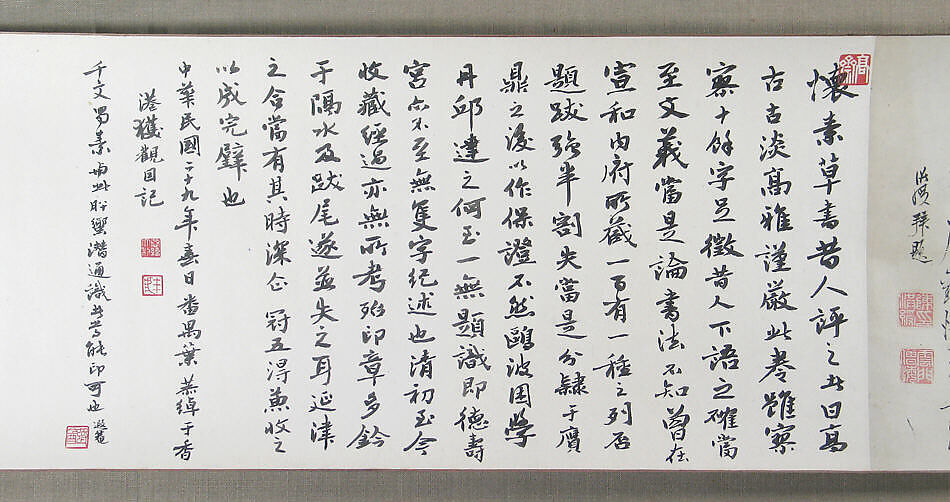 懷素草書昔人評之書曰高
古古淡高雅謹嚴此卷雖寥
寥十餘字足徵昔人下語之確當
至文義當是論書法不知曾在
宣和內府所藏一百有一種之列否
題跋強半割失當是分隸于贋
鼎之後以作保證不然鷗波困學
丹邱達之何至一無題識即德壽
宮亦不至無隻字紀述也清初至今
收藏經過亦無所考殆印章多鈐
于隔水及跋尾遂並失之耳延津
之合當有其時深企冠五淂兼收之
以成完璧也
中華民國二十九年春日番禺葉恭綽于香
港獲觀因記
千文蜀素與此脗蠁潛通識者能印可也遐菴
題